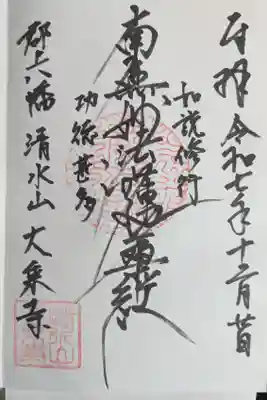 奉拝 令和七年十二月
如説修行
南無妙法蓮華経
功徳甚多
郡上八幡 清水山 大乗寺